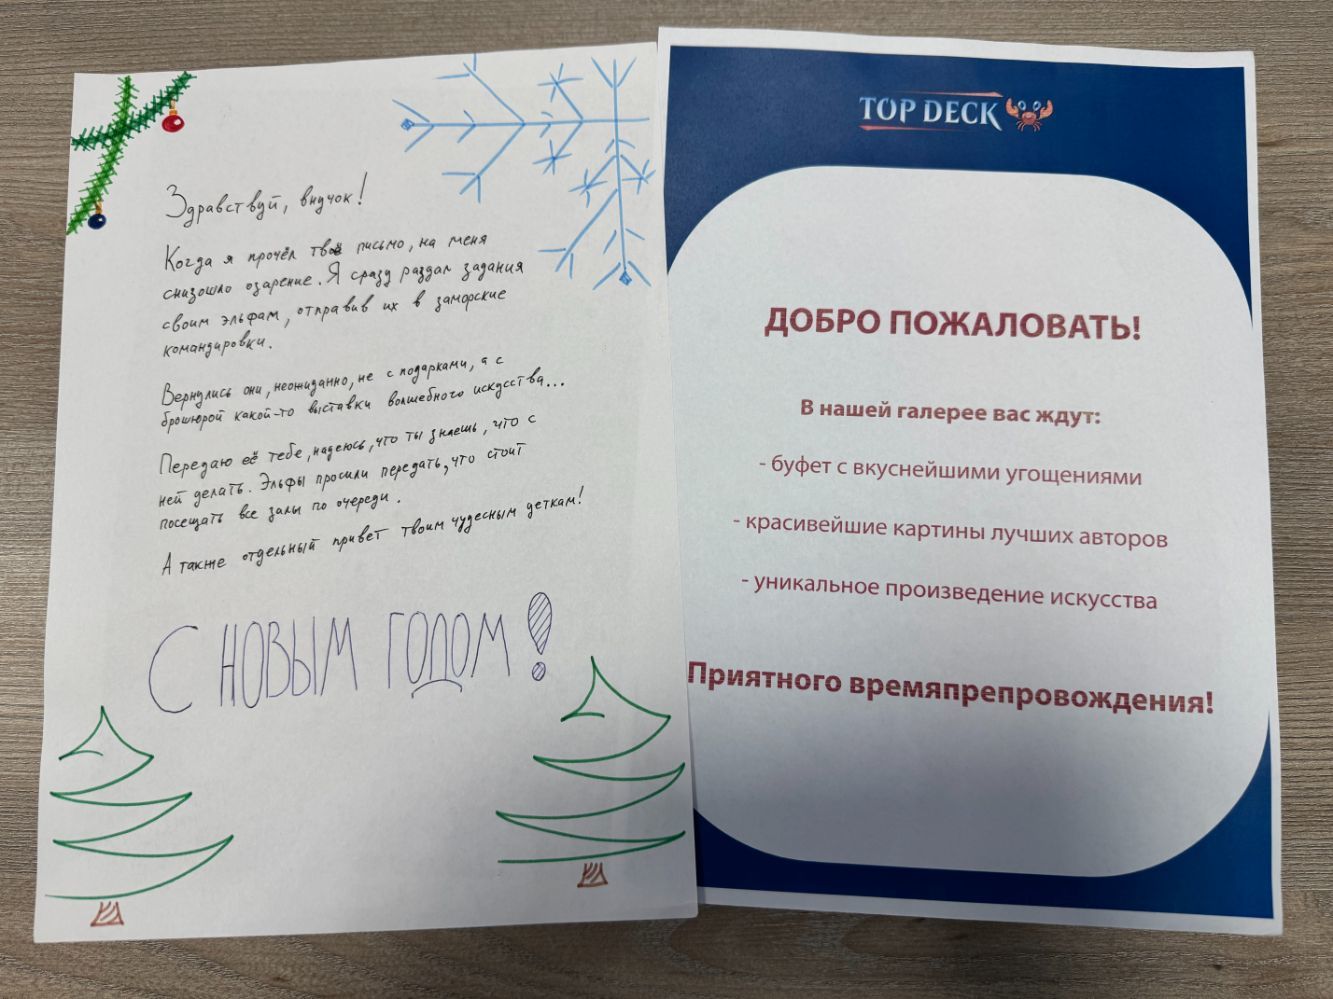 Здравствуй, внучок!
Когда я прочёл твоё письмо, на меня
снизошло озарение. Я сразу раздал задания
своим эльфам, отправив их в заморские
командировки.
Вернулись они, неожиданно, не с подарками, а с
брошюрой какой-то выставки волшебного искусства...
Передаю её тебе, надеюсь, что ты знаешь, что с
ней делать. Эльфы просили передать, что стоит
посещать все залы по очереди.
А также отдельный привет твоим чудесным деткам!
С НОВЫМ ГОДОМ!
TOP DECK
ДОБРО ПОЖАЛОВАТЬ!
В нашей галерее вас ждут:
- буфет с вкуснейшими угощениями
- красивейшие картины лучших авторов
- уникальное произведение искусства
Приятного времяпрепровождения!